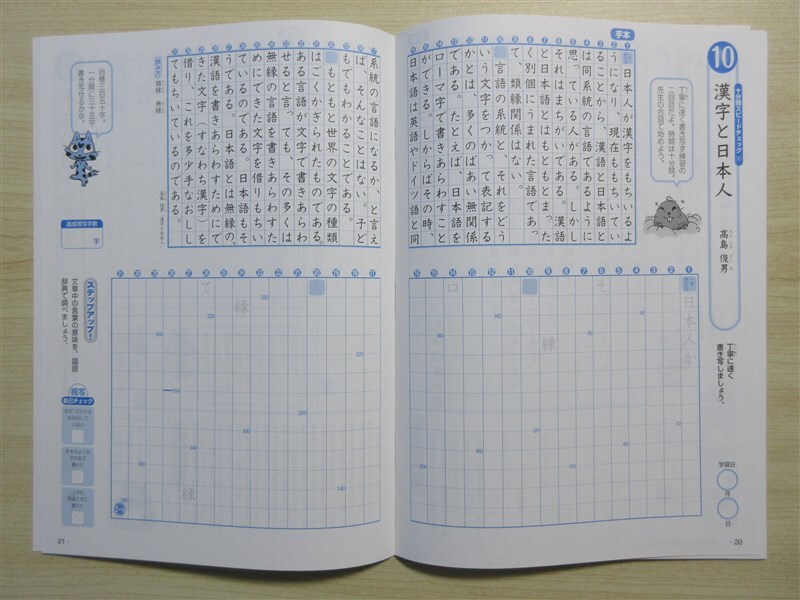 10
十分間スピードチェック②
漢字と日本人
高島 俊男
丁寧に速く
書き写しましょう。
学習日
月
日
丁寧に速く書き写す練習の
二回目だよ。時間は十分間。
先生の合図で始めよう。
手本
日本人が漢字をもちいるよ
うになり、現在ももちいてい
ることから、漢語と日本語と
は同系統の言語であるように
思っている人がある。しかし
それはまちがいである。漢語
と日本語とはもともとまった
く別個にうまれた言語であっ
て、類縁関係はない。
言語の系統と、それをどう
いう文字をつかって表記する
かとは、多くのばあい無関係
である。たとえば、日本語を
ローマ字で書きあらわすこと
ができる。しからばその時、
日本語は英語やドイツ語と同
系統の言語になるか、と言え
ば、そんなことはない。子ど
もでもわかることである。
もともと世界の文字の種類
はごくかぎられたものである。
ある言語が文字で書きあらわ
せると言っても、その多くは
無縁の言語を書きあらわすた
めにできた文字を借りもちい
ているのである。日本語もそ
うである。日本語とは無縁の、
漢語を書きあらわすためにで
きた文字(すなわち漢字)を
借り、これを多少手なおしし
てもちいているのである。
目標三百五十字。
一分間に三十五字
書き写せるかな。
達成視写字数
字
日本人が
そ
縁
ロ
て
縁
縁
ステップアップ!
文章中の言葉の意味を、国語
辞典で調べましょう。
視写
自己チェック
20
21